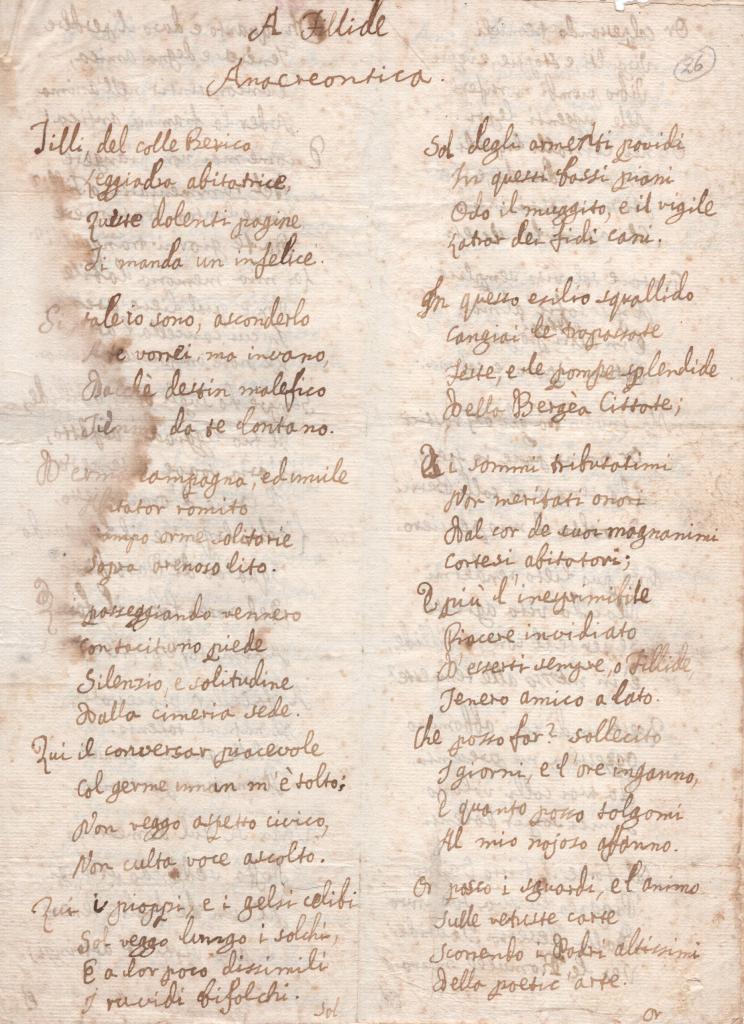 A Fillide
Anacreontica.
26
Filli, del colle Berico
Leggiadra abitatrice,
Queste dolenti pagine
Ti manda un infelice.
Si, tale io sono, asconderlo
A te vorrei, ma invano,
Dacchè destin malefico
Tiemmi da te lontano.
D'erma campagna, ed umile
Abitator romito
Stampo orme solitarie
Sopra arenoso lito.
Qui passeggiando vennero
Con taciturno piede
Silenzio, e solitudine
Dalla cimeria sede.
Qui il conversar piacevole
Col germe uman m'è tolto;
Non veggo aspetto civico,
Non culta voce ascolto.
Qui i pioppi, e i gelsi celibi
Sol veggo lungo i solchi,
E a lor poco dissimili
I ruvidi bifolchi.
Sol
Sol degli armenti pavidi
In questi bassi piani
Odo il muggito, e il vigile
Latrar dei fidi cani.
In questo esilio squallido
Cangiai le trapassate
Feste, e le pompe splendide
Della Bergèa Cittate;
I sommi tributatimi
Non meritati onori
Dal cor de suoi magnanimi
Cortesi abitatori;
E più l'inesprimibile
Piacere invidiato
D'esserti sempre, o Fillide,
Tenero amico a lato.
Che posso far? sollecito
I giorni, e l'ore inganno,
E quanto posso tolgomi
Al mio nojoso affanno.
Or pasco i sguardi, e l'animo
Sulle vetuste carte
Scorrendo i Padri altissimi
Della poetic'arte.
Or